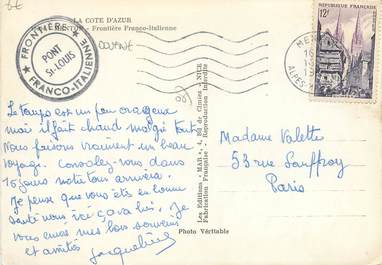 LA COTE D'AZUR
MENTON - Frontière Franco-Italienne
FRONTIÈRE
FRANCO-ITALIENNE
PONT
St-LOUIS
DOUANE
RÉPUBLIQUE FRANÇAISE
12F
MEN
ALPES
Le temps est un peu orageux
mais il fait chaud malgré tout
Nous faisons vraiment un beau
voyage. Consolez-vous dans
15 jours notre tour arrivera.
Je pense que vous êtes en bonne
santé nous ici ça va bien. Je
vous envoie mes bons souvenirs
et amitiés
Jacqueline
Les Editions - MAR - 4, Bd de Cimiez - NICE
Fabrication Française - Reproduction Interdite
Madame Valette
53 rue
Paris
Photo Véritable